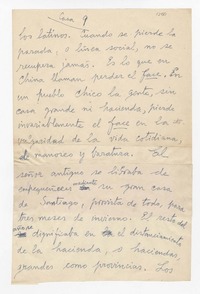 Casa 9
los latinos. Cuando se pierde la
parada, o línea social, no se
recupera jamás. Es lo que en
China llaman perder el face. En
un pueblo chico la gente, sin
casa grande ni hacienda, pierde
invariablemente el face en la
vulgaridad de la vida cotidiana,
de manoseo y baratura. El
señor antiguo se libraba de
empequeñecerse mediante su gran casa
de Santiago, provista de todo, para
tres meses de invierno. El resto del
año dignificaba en el distanciamiento
de la hacienda, o haciendas,
grandes como provincias. Los